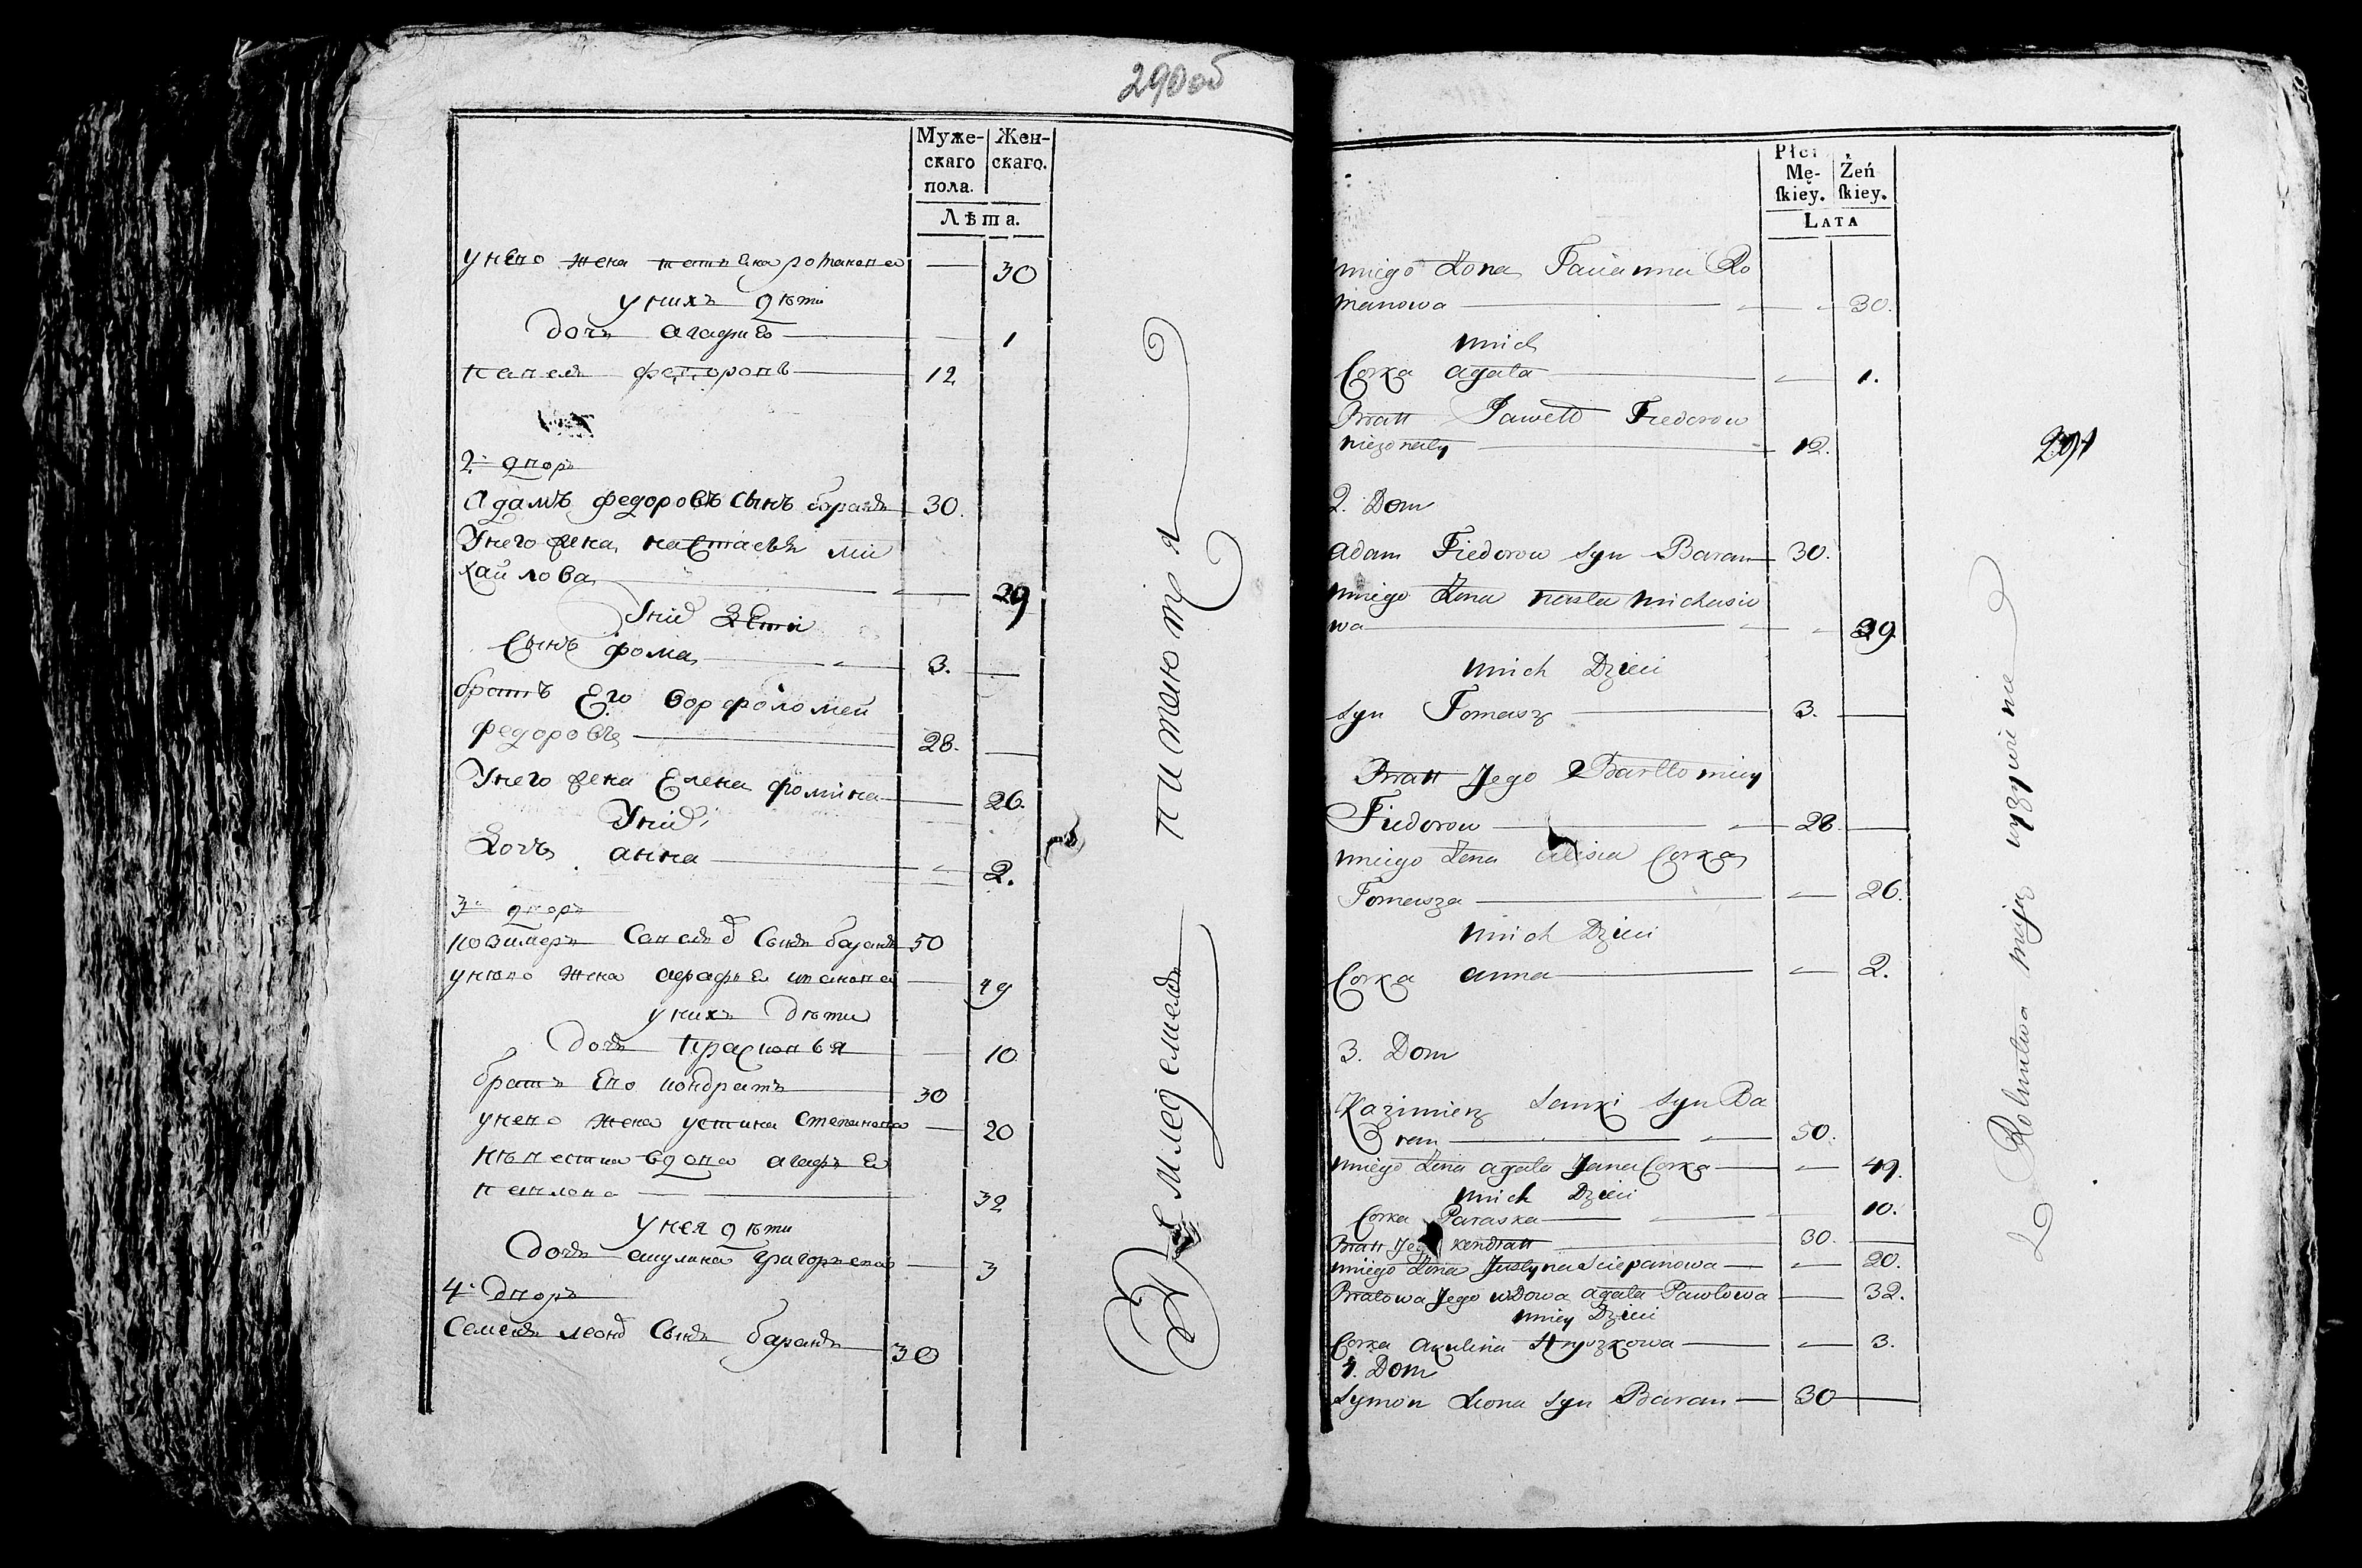 290об
Муже- Жен-
скаго скаго.
пола.
Лѣта.
у нево жена романова 30
у нихъ дѣти
дочь агафиа 1
павелъ феторовъ 12
2. двор
Адамъ федоровъ сынъ баранъ 30.
Унего жена настасья ми
хайлова 29
Унихъ Дети
Сынъ фома 3.
братъ Его ворфоломей
федоровъ 28.
Унего жена Елена фомина 26.
Унихъ
Дочь анна 2.
3. двор
Сынъ баранъ 50
жена 49
у нихъ дѣти
дочь Прасковья 10
братъ Ево кондратъ 30
у нево жена устина степанова 20
невестка вдова агафьа
павлова 32
У нея дѣти
дочь акулина григорьева 3
4. двор
Семенъ леонов Сынъ баранъ 30
питаютця
Płci
Mę- Żeń
skiey. skiey.
LATA
uniego Żona Ro
manowa 30.
unich
Corka agata 1.
Bratt Pawełł Fiedorow
nieżonaty 12.
291
2. Dom
adam Fiedorow syn Baran 30.
uniego Żona nasta michasio
wa 29
unich Dzieci
syn Tomasz 3.
Bratt Jego Barttomiey
Fiedorow 28.
uniego Żona Corka
Tomasza 26.
unich Dzieci
Corka anna 2.
3. Dom
Kazimierz Sawki syn Ba
ran 50.
uniego Żona agata Jana Corka 49.
unich Dzieci
Corka Paraska 10.
Bratt Jego kondratt 30.
uniego Żona Justyna Sciepanowa 20.
Bratowa Jego wdowa agata Pawłowa 32.
uniey Dzieci
Corka akulina Hryszkowa 3.
4. Dom
Symon Leona syn Baran 30
Z Rolnictwa mają wyżywienie